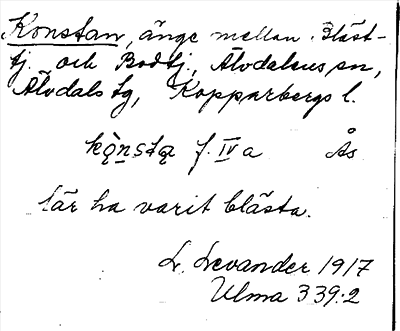 Konstan, änge mellan Bläst-
tj. och Bodtj., Älvdalens sn,
Älvdals tg, Kopparbergs l.
kǫ̀nsta f. IV a Ås.
Lär ha varit blästa.
L. Levander 1917
Ulma 339:2